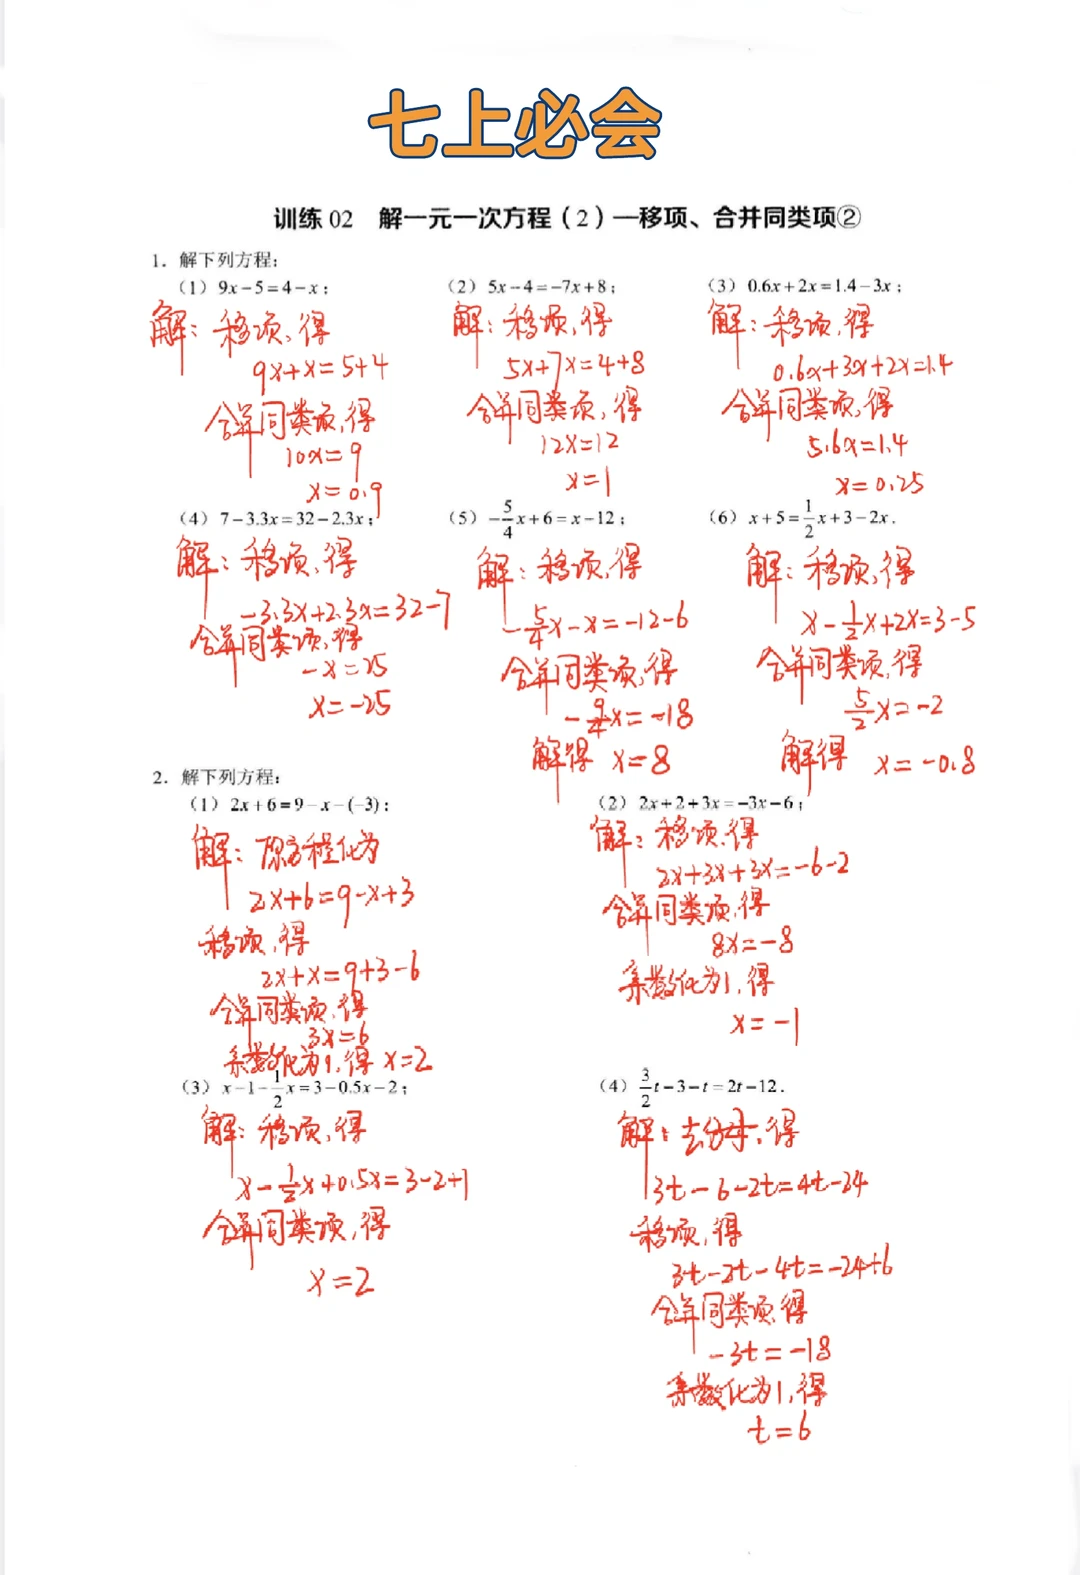 七上必会
训练 02 解一元一次方程（2）—移项、合并同类项②
1．解下列方程：
（1）9x－5＝4－x；
解：移项，得
9x+x=5+4
合并同类项，得
10x=9
x=0.9
（2）5x－4＝－7x＋8；
解：移项，得
5x+7x=4+8
合并同类项，得
12x=12
x=1
（3）0.6x＋2x＝1.4－3x；
解：移项，得
0.6x+3x+2x=1.4
合并同类项，得
5.6x=1.4
x=0.25
（4）7－3.3x＝32－2.3x；
解：移项，得
-3.3x+2.3x=32-7
合并同类项，得
-x=25
x=-25
（5）－5/4x＋6＝x－12；
解：移项，得
-5/4x-x=-12-6
合并同类项，得
-9/4x=-18
解得 x=8
（6）x＋5＝1/2x＋3－2x．
解：移项，得
x-1/2x+2x=3-5
合并同类项，得
5/2x=-2
解得 x=-0.8
2．解下列方程：
（1）2x＋6＝9－x－(－3)；
解：原方程化为
2x+6=9-x+3
移项，得
2x+x=9+3-6
合并同类项，得
3x=6
系数化为1，得 x=2
（2）2x＋2＋3x＝－3x－6；
解：移项，得
2x+3x+3x=-6-2
合并同类项，得
8x=-8
系数化为1，得
x=-1
（3）x－1－1/2x＝3－0.5x－2；
解：移项，得
x-1/2x+0.5x=3-2+1
合并同类项，得
x=2
（4）3/2t－3－t＝2t－12．
解：去分母，得
3t-6-2t=4t-24
移项，得
3t-2t-4t=-24+6
合并同类项，得
-3t=-18
系数化为1，得
t=6